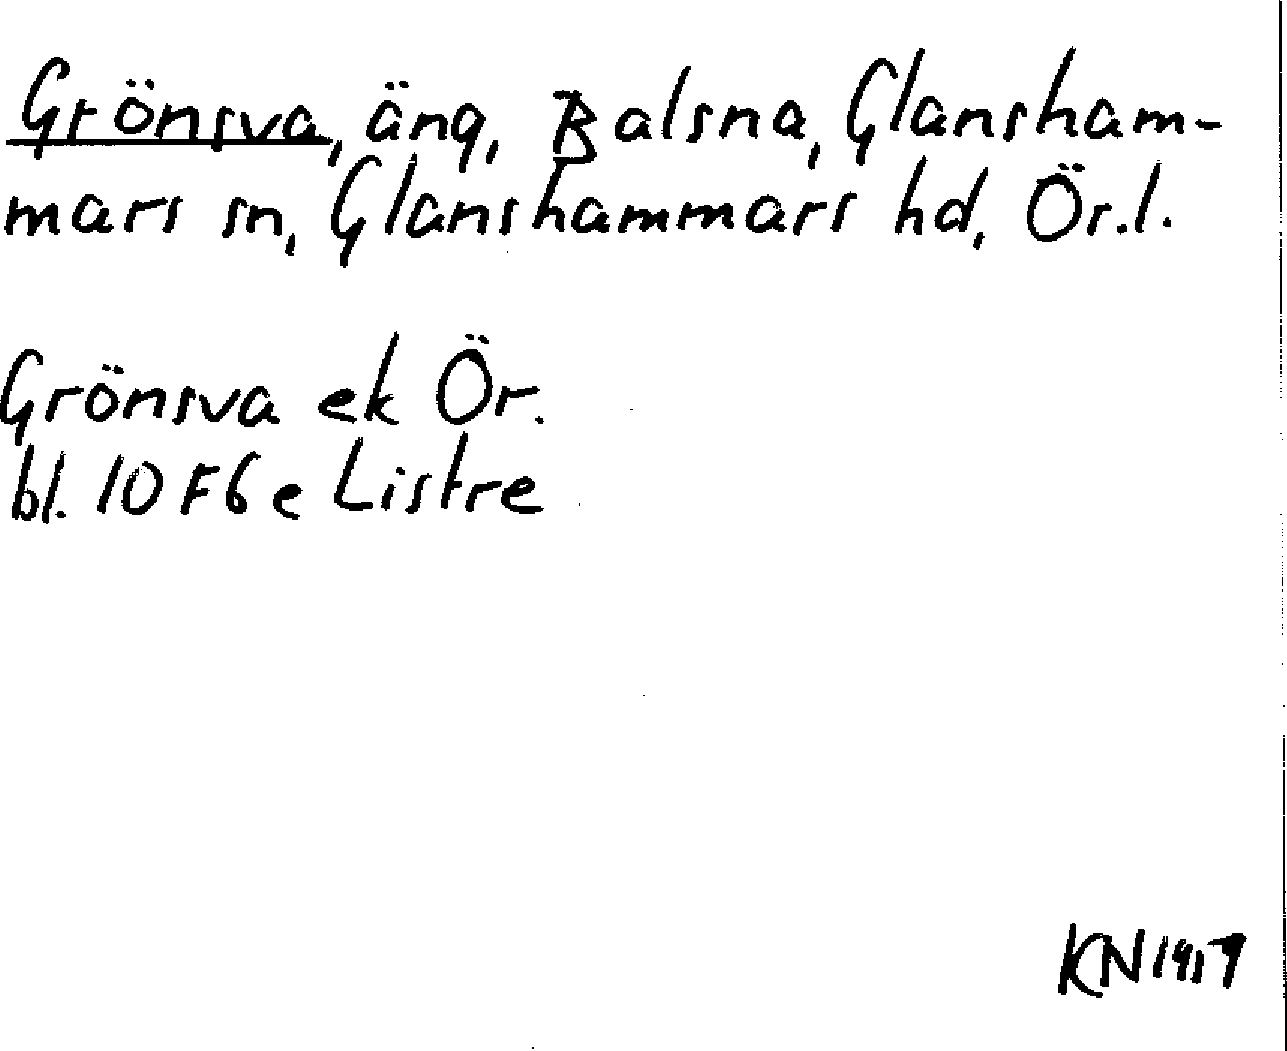 Grönsva, äng, Balsna, Glansham-
mars sn, Glanshammars hd, Ör.l.
Grönsva ek Ör.
bl. 10 F6e Listre
KN1917